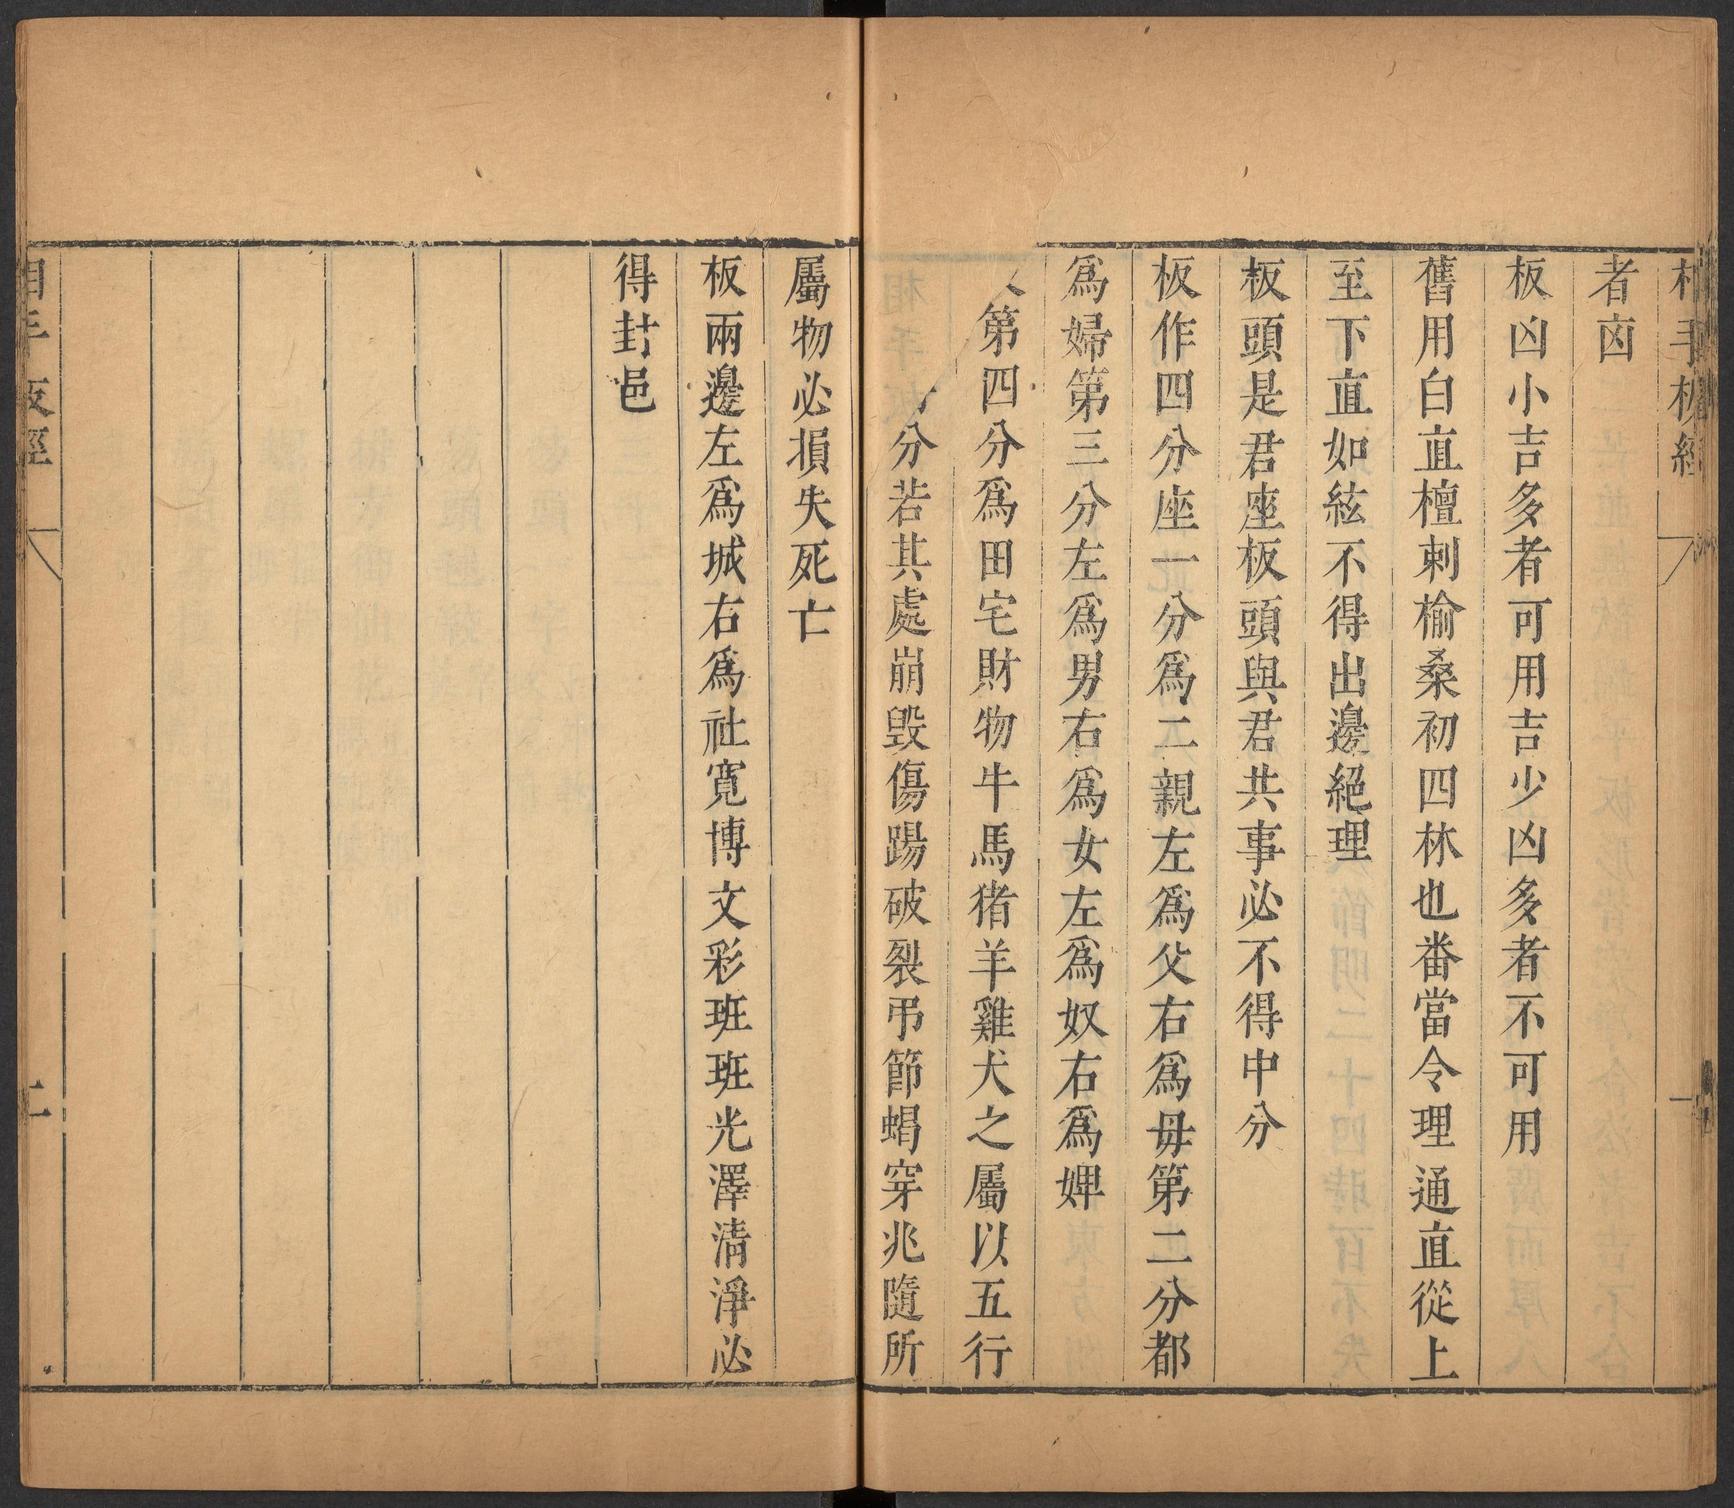 相手板經
一
者卤
板凶小吉多者可用吉少凶多者不可用
舊用白直檀刺榆桑初四林也番當令理通直從上
至下直如絃不得出邊絕理
板頭是君座板頭與君共事必不得中分
板作四分座一分爲二親左爲父右爲母第二分都
爲婦第三分左爲男右爲女左爲奴右爲婢
第四分爲田宅財物牛馬猪羊雞犬之屬以五行
分若其處崩毀傷踢破裂弔節蝎穿兆隨所
屬物必損失死亡
板兩邊左爲城右爲社寬博文彩班班光澤清淨必
得封邑
相手板經
二